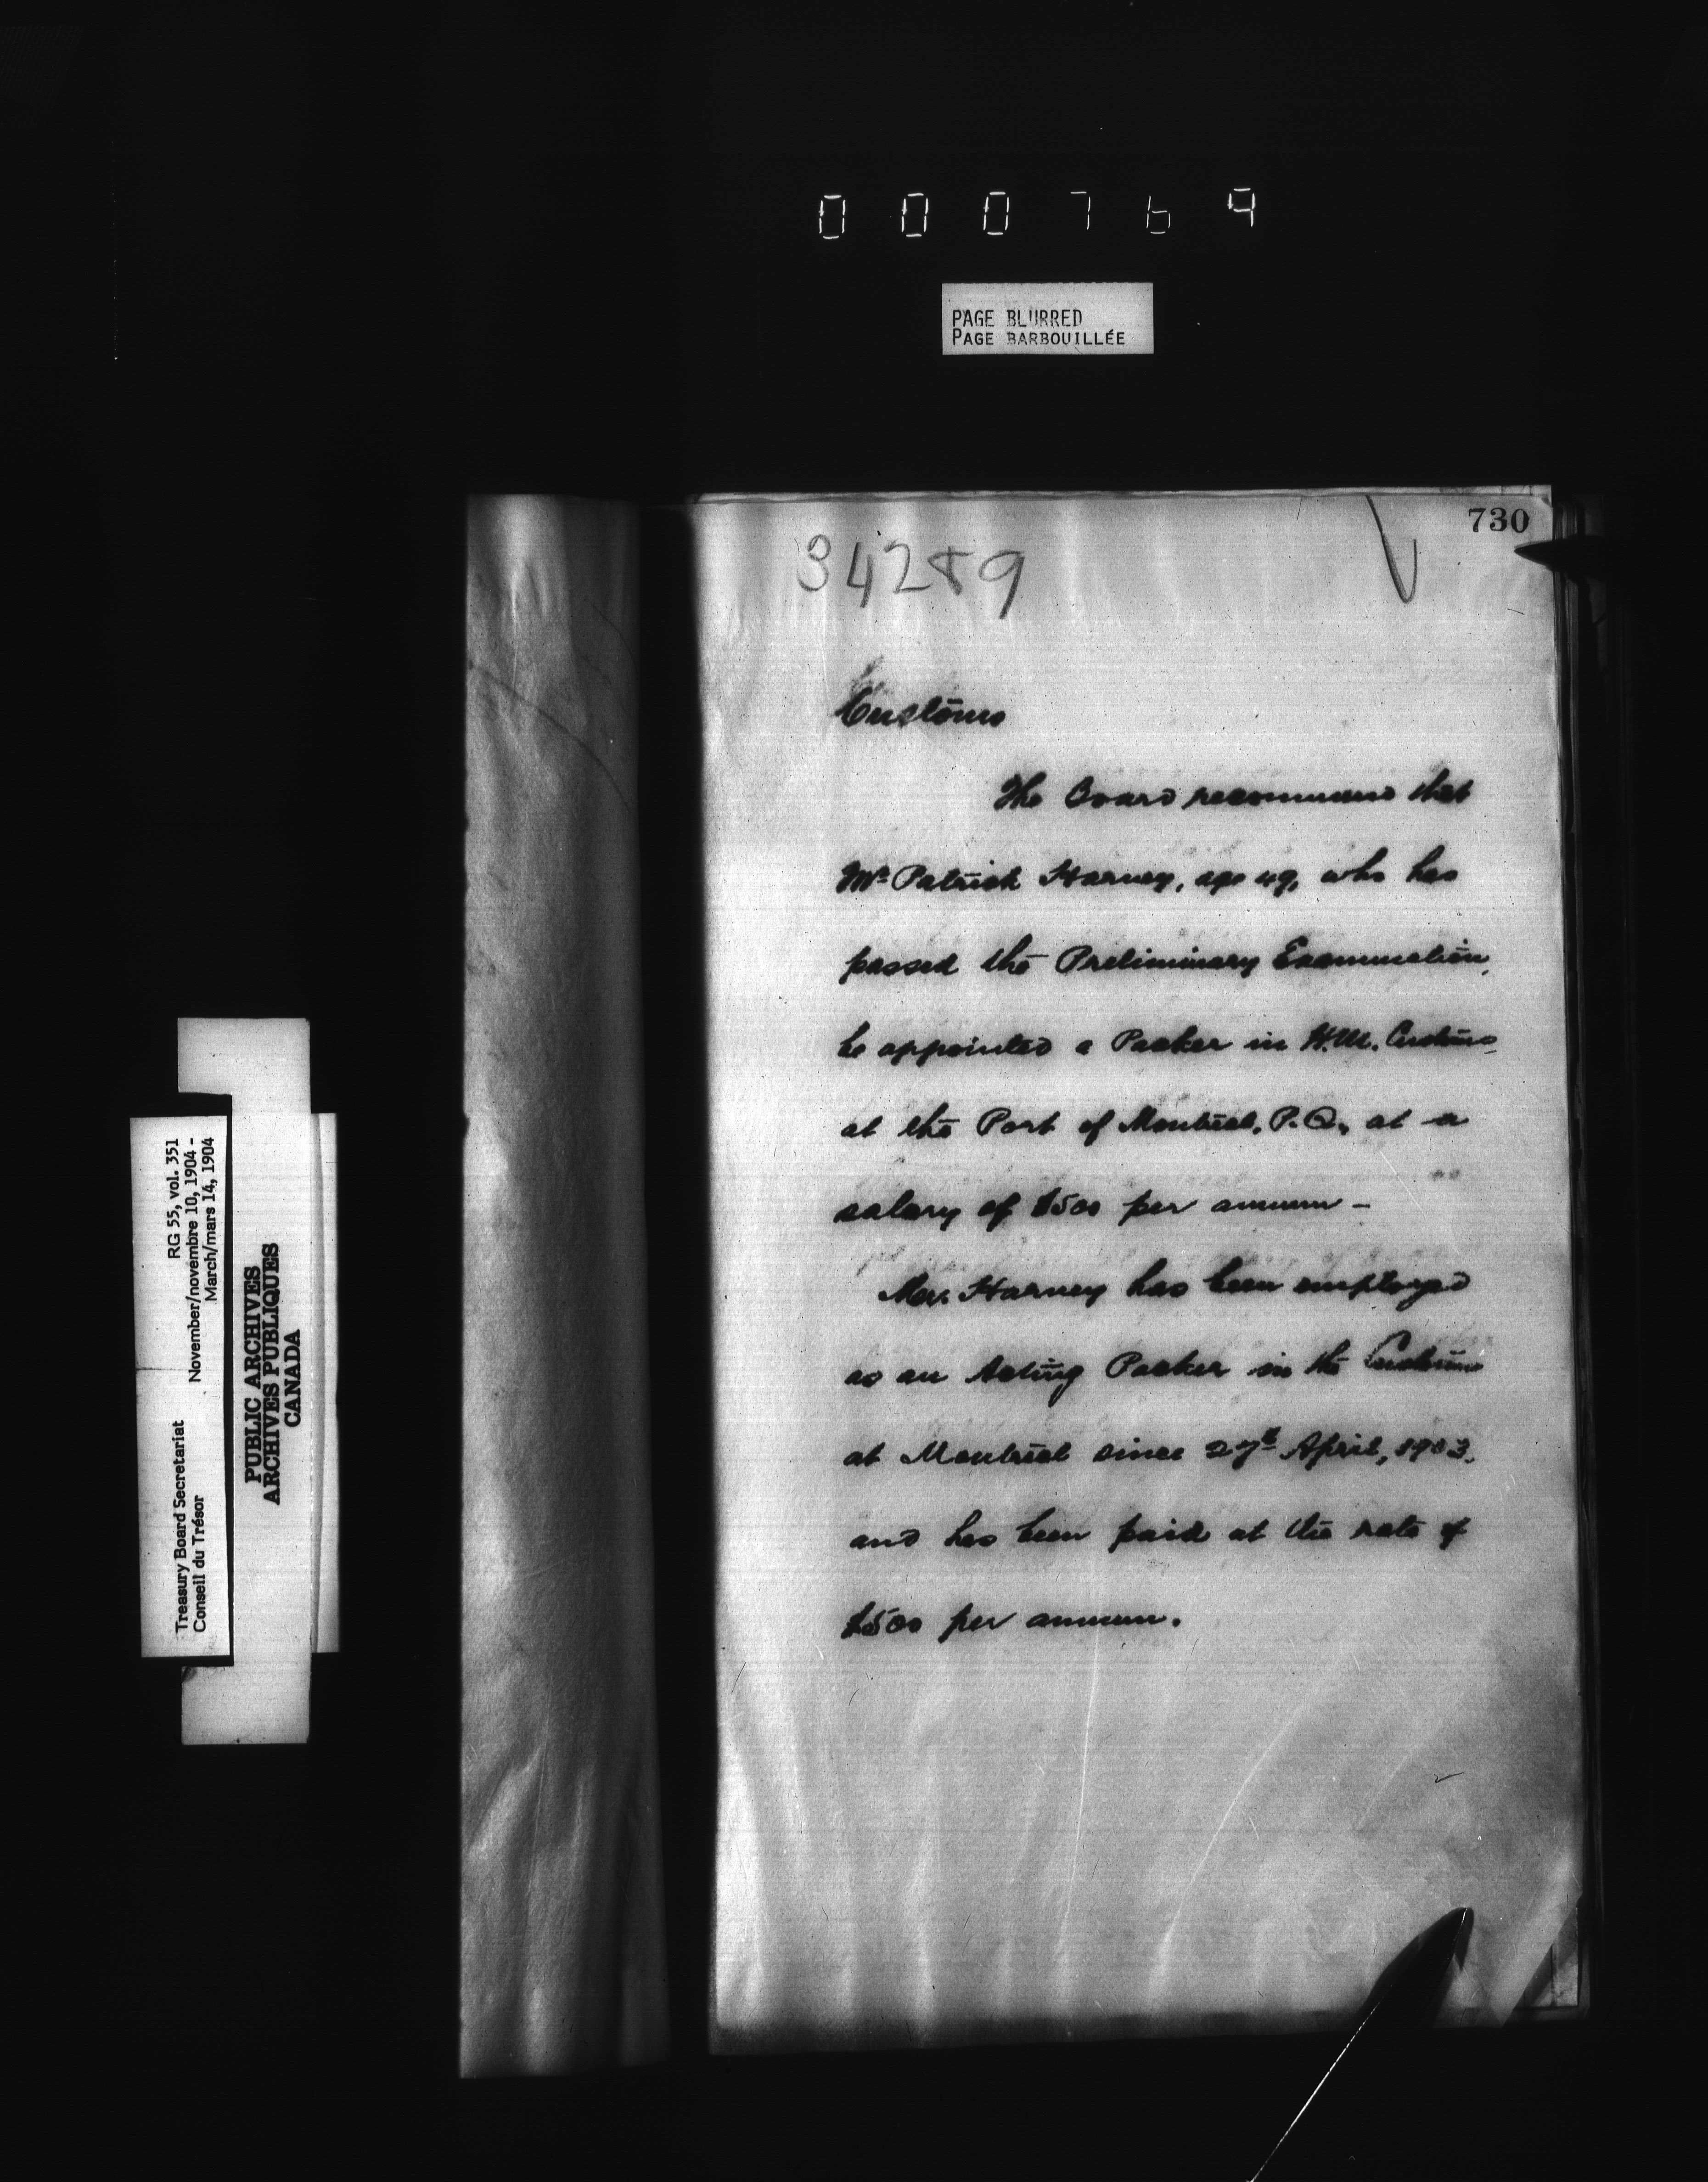 000769
PAGE BLURRED
PAGE BARBOUILLÉE
730
34289
Customs
The Board recommend that
Mr. Patrick Harney, age 49, who has
passed the Preliminary Examination,
be appointed a Packer in H.M. Customs
at the Port of Montreal, P.Q., at a
salary of $500 per annum –
Mr. Harney has been employed
as an Acting Packer in the Customs
at Montreal since 27th April, 1903,
and has been paid at the rate of
$500 per annum.
Treasury Board Secretariat RG 55, vol. 351
Conseil du Trésor November/novembre 10, 1904 -
March/mars 14, 1904
PUBLIC ARCHIVES
ARCHIVES PUBLIQUES
CANADA